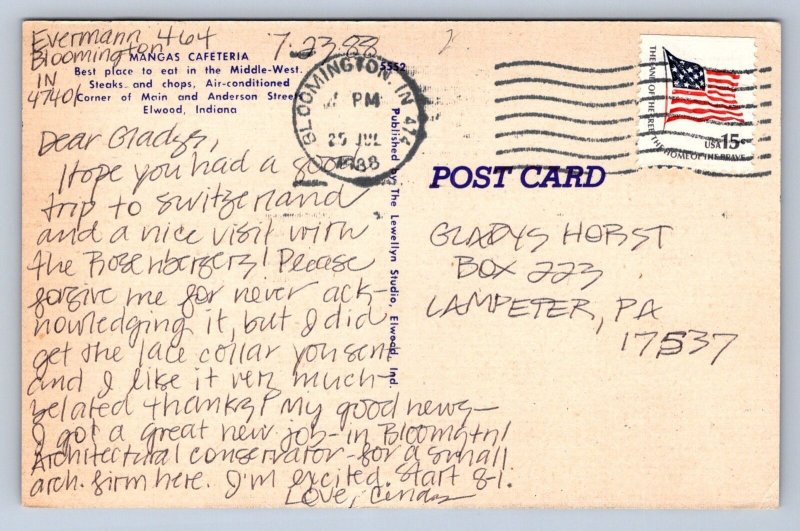 Evermann 464
Bloomington
IN
47406
7-23-88
MANGAS CAFETERIA
Best place to eat in the Middle-West.
Steaks and chops, Air-conditioned
Corner of Main and Anderson Streets
Elwood, Indiana
5552
BLOOMINGTON, IN 474
PM
25 JUL
1988
Published by The Lewellyn Studio, Elwood, Ind.
THE LAND OF THE FREE THE HOME OF THE BRAVE
USA 15c
POST CARD
Dear Gladys,
Hope you had a good
trip to Switzerland
and a nice visit with
the Rosenbergers! Please
forgive me for never ack-
nowledging it, but I did
get the lace collar you sent
and I like it very much-
belated thanks! My good news-
I got a great new job-in Bloomgtn!
Architectural conservator-for a small
arch. firm here. I'm excited. Start 8-1.
Love, Cinda
GLADYS HORST
BOX 223
LAMPETER, PA
17537